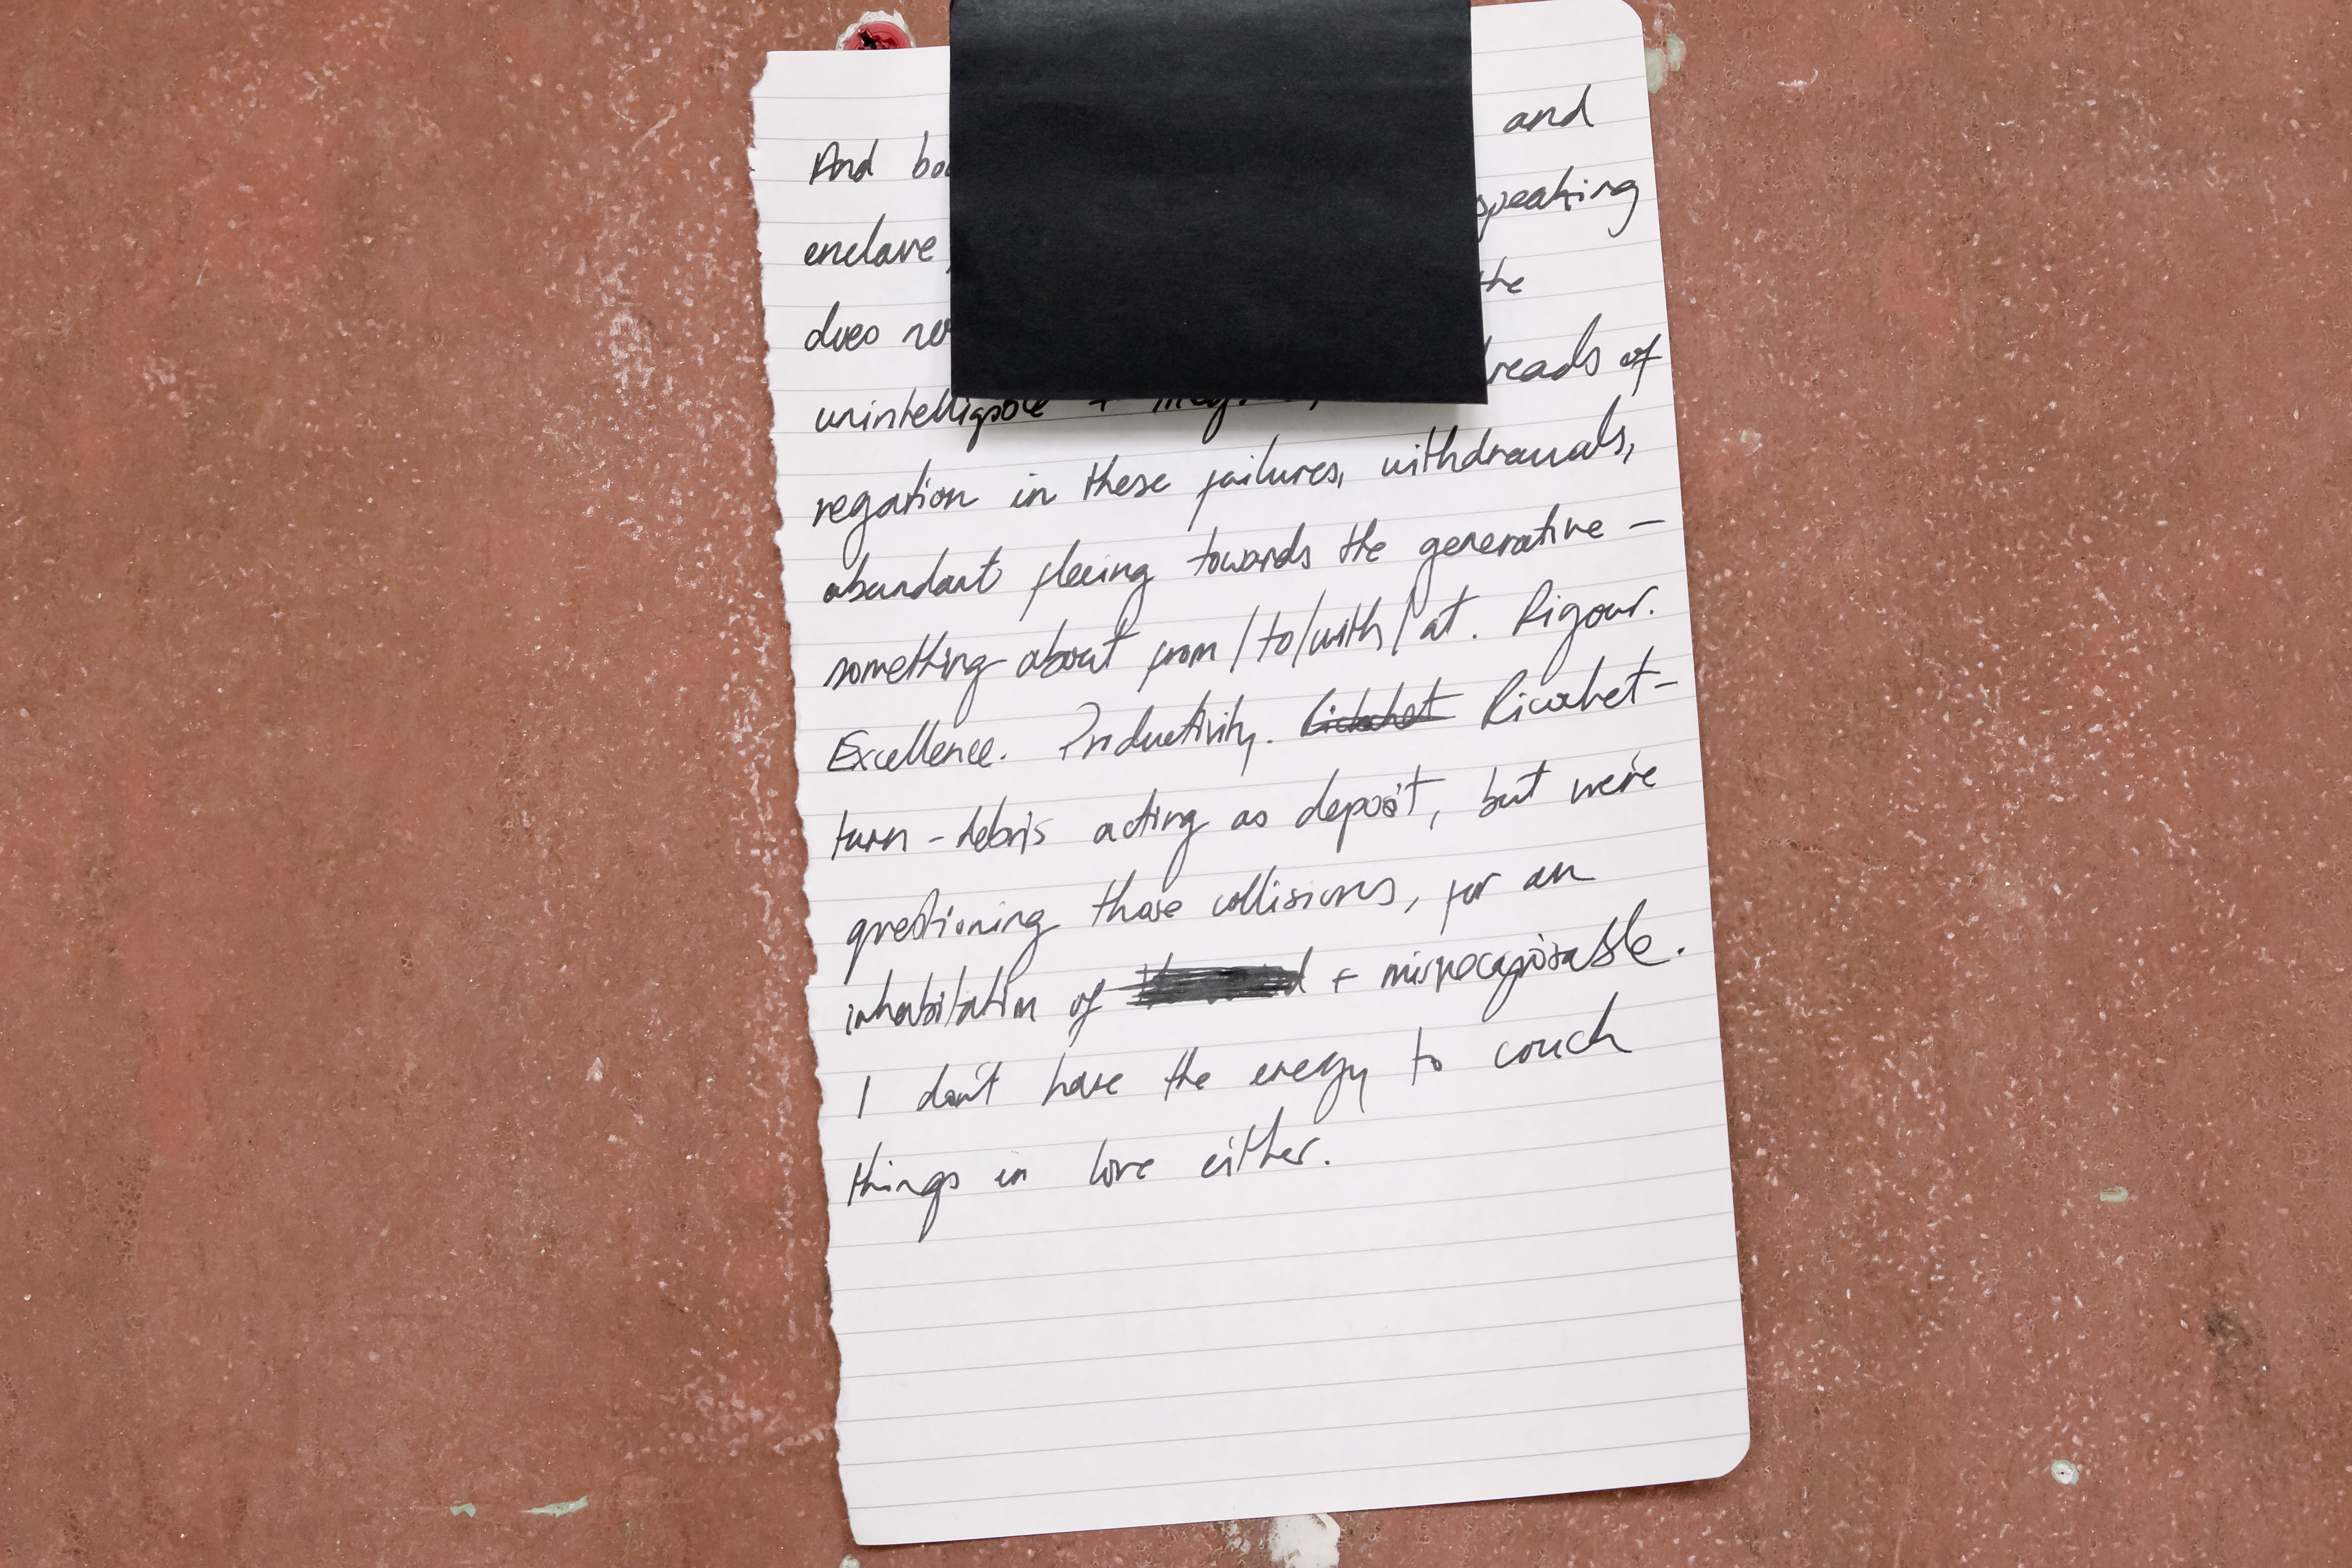 And and
enclave, speaking
does the
unintelligible + of
negation in these failures, withdrawals,
abundant fleeing towards the generative –
something about from / to / with / at. Rigour.
Excellence. Productivity. Ricochet Ricochet –
turn – debris acting as deposit, but we're
questioning those collisions, for an
inhabitation of + misrecognisable.
I don't have the energy to couch
things in love either.